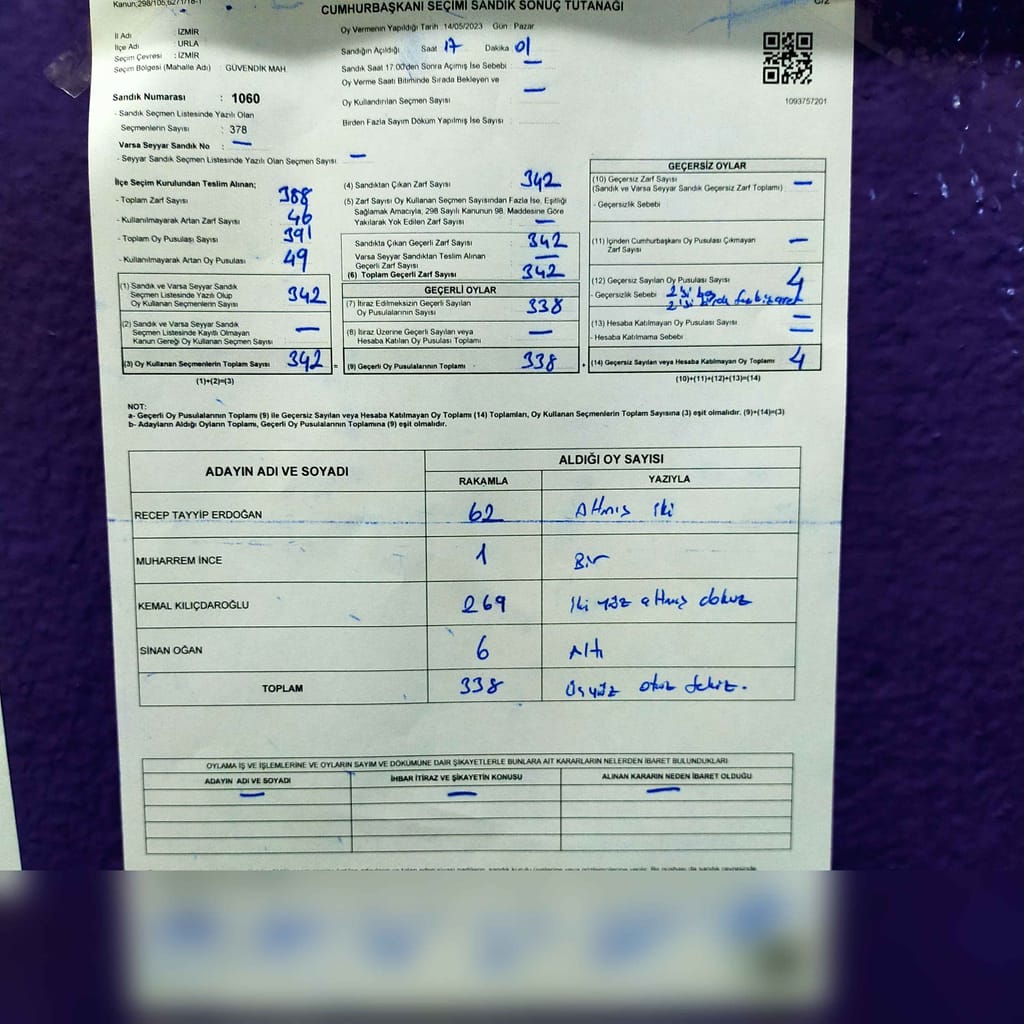 Kanun;298/105,627/18-1
CUMHURBAŞKANI SEÇİMİ SANDIK SONUÇ TUTANAĞI
İl Adı : İZMİR
İlçe Adı : URLA
Seçim Çevresi : İZMİR
Seçim Bölgesi (Mahalle Adı) : GÜVENDİK MAH.
Oy Vermenin Yapıldığı Tarih 14/05/2023 Gün Pazar
Sandığın Açıldığı Saat 17 Dakika 01
Sandık Saat 17.00'den Sonra Açımış İse Sebebi —
Oy Verme Saati Bitiminde Sırada Bekleyen ve
Oy Kullandırılan Seçmen Sayısı —
Birden Fazla Sayım Döküm Yapılmış İse Sayısı
1093757201
Sandık Numarası : 1060
- Sandık Seçmen Listesinde Yazılı Olan
Seçmenlerin Sayısı : 378
Varsa Seyyar Sandık No : —
- Seyyar Sandık Seçmen Listesinde Yazılı Olan Seçmen Sayısı —
İlçe Seçim Kurulundan Teslim Alınan;
- Toplam Zarf Sayısı 388
- Kullanılmayarak Artan Zarf Sayısı 46
- Toplam Oy Pusulası Sayısı 391
- Kullanılmayarak Artan Oy Pusulası 49
(1) Sandık ve Varsa Seyyar Sandık
Seçmen Listesinde Yazılı Olup
Oy Kullanan Seçmenlerin Sayısı 342
(2) Sandık ve Varsa Seyyar Sandık
Seçmen Listesinde Kayıtlı Olmayan
Kanun Gereği Oy Kullanan Seçmen Sayısı —
(3) Oy Kullanan Seçmenlerin Toplam Sayısı 342
(1)+(2)=(3)
(4) Sandıktan Çıkan Zarf Sayısı 342
(5) Zarf Sayısı Oy Kullanan Seçmen Sayısından Fazla İse, Eşitliği
Sağlamak Amacıyla, 298 Sayılı Kanunun 98. Maddesine Göre
Yakılarak Yok Edilen Zarf Sayısı —
Sandıkta Çıkan Geçerli Zarf Sayısı : 342
Varsa Seyyar Sandıktan Teslim Alınan
Geçerli Zarf Sayısı : —
(6) Toplam Geçerli Zarf Sayısı : 342
GEÇERLİ OYLAR
(7) İtiraz Edilmeksizin Geçerli Sayılan
Oy Pusulalarının Sayısı 338
(8) İtiraz Üzerine Geçerli Sayılan veya
Hesaba Katılan Oy Pusulası Toplamı —
(9) Geçerli Oy Pusulalarının Toplamı 338
=
+
GEÇERSİZ OYLAR
(10) Geçersiz Zarf Sayısı
(Sandık ve Varsa Seyyar Sandık Geçersiz Zarf Toplamı) —
- Geçersizlik Sebebi
(11) İçinden Cumhurbaşkanı Oy Pusulası Çıkmayan
Zarf Sayısı —
(12) Geçersiz Sayılan Oy Pusulası Sayısı 4
- Geçersizlik Sebebi
(13) Hesaba Katılmayan Oy Pusulası Sayısı —
- Hesaba Katılmama Sebebi —
(14) Geçersiz Sayılan veya Hesaba Katılmayan Oy Toplamı 4
(10)+(11)+(12)+(13)=(14)
NOT:
a- Geçerli Oy Pusulalarının Toplamı (9) ile Geçersiz Sayılan veya Hesaba Katılmayan Oy Toplamı (14) Toplamları, Oy Kullanan Seçmenlerin Toplam Sayısına (3) eşit olmalıdır. (9)+(14)=(3)
b- Adayların Aldığı Oyların Toplamı, Geçerli Oy Pusulalarının Toplamına (9) eşit olmalıdır.
ADAYIN ADI VE SOYADI
ALDIĞI OY SAYISI
RAKAMLA YAZIYLA
RECEP TAYYİP ERDOĞAN 62 Altmış iki
MUHARREM İNCE 1 Bir
KEMAL KILIÇDAROĞLU 269 iki yüz altmış dokuz
SİNAN OĞAN 6 Altı
TOPLAM 338 üç yüz otuz sekiz.
OYLAMA İŞ VE İŞLEMLERİNE VE OYLARIN SAYIM VE DÖKÜMÜNE DAİR ŞİKAYETLERLE BUNLARA AİT KARARLARIN NELERDEN İBARET BULUNDUKLARI
ADAYIN ADI VE SOYADI İHBAR İTİRAZ VE ŞİKAYETİN KONUSU ALINAN KARARIN NEDEN İBARET OLDUĞU
— — —